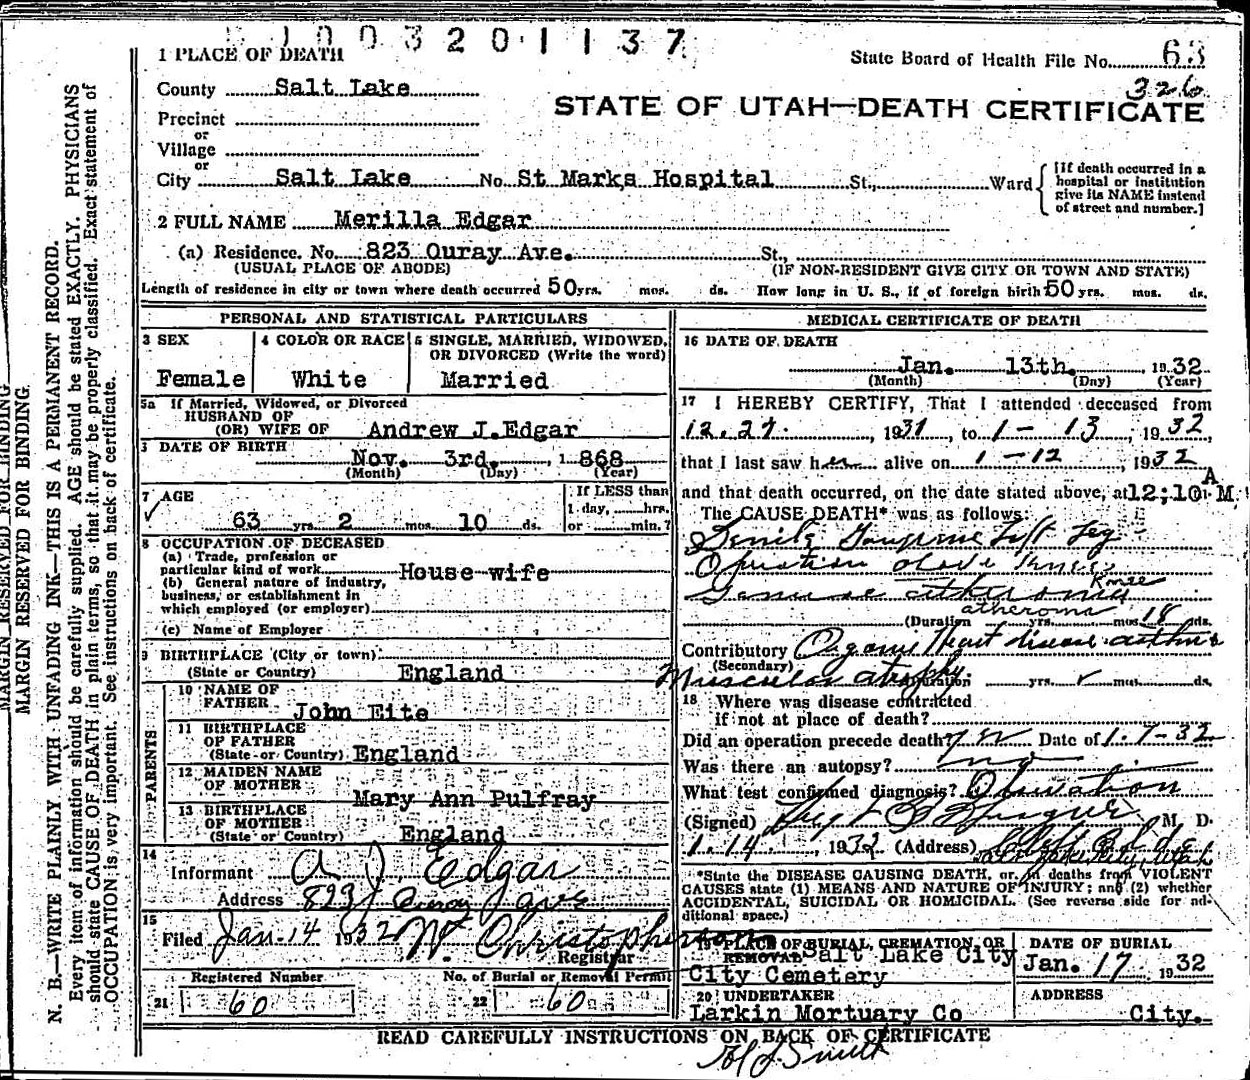 1003201137
1 PLACE OF DEATH
State Board of Health File No. 63
326
County Salt Lake
STATE OF UTAH—DEATH CERTIFICATE
Precinct
or
Village
or
City Salt Lake No. St Marks Hospital St., Ward
[If death occurred in a
hospital or institution
give its NAME instead
of street and number.]
2 FULL NAME Merilla Edgar
(a) Residence. No. 823 Ouray Ave. St.,
(USUAL PLACE OF ABODE) (IF NON-RESIDENT GIVE CITY OR TOWN AND STATE)
Length of residence in city or town where death occurred 50 yrs. mos. ds. How long in U. S., if of foreign birth 50 yrs. mos. ds.
PERSONAL AND STATISTICAL PARTICULARS
3 SEX
Female
4 COLOR OR RACE
White
5 SINGLE, MARRIED, WIDOWED,
OR DIVORCED (Write the word)
Married
5a If Married, Widowed, or Divorced
HUSBAND OF
(OR) WIFE OF Andrew J.Edgar
DATE OF BIRTH
Nov. 3rd. , 1 868
(Month) (Day) (Year)
7 AGE
63 yrs. 2 mos. 10 ds.
If LESS than
1 day, hrs.
or min.?
8 OCCUPATION OF DECEASED
(a) Trade, profession or
particular kind of work House wife
(b) General nature of industry,
business, or establishment in
which employed (or employer)
(c) Name of Employer
9 BIRTHPLACE (City or town)
(State or Country) England
PARENTS
10 NAME OF
FATHER John Eite
11 BIRTHPLACE
OF FATHER
(State or Country) England
12 MAIDEN NAME
OF MOTHER
Mary Ann Pulfray
13 BIRTHPLACE
OF MOTHER
(State or Country) England
14
Informant A J. Edgar
Address 823 Ouray Ave
15
Filed Jan. 14 1932 W. Christopherson
Registrar
Registered Number No. of Burial or Removal Permit
21 60 22 60
MEDICAL CERTIFICATE OF DEATH
16 DATE OF DEATH
Jan. 13th. , 19 32
(Month) (Day) (Year)
17 I HEREBY CERTIFY, That I attended deceased from
12.27. , 1931, to 1 - 13 , 1932,
that I last saw her alive on 1 - 12 , 1932
and that death occurred, on the date stated above, at 12;10 A M.
The CAUSE DEATH* was as follows:
Senile Gangrene Left Leg
Operation above Knee
Knee
atheroma
(Duration yrs. mos. 18 ds.
Contributory Organic Heart disease
(Secondary)
Muscular atrophy.
Duration yrs. mos. ds.
18 Where was disease contracted
if not at place of death?
Did an operation precede death? yes Date of 1-7-32
Was there an autopsy? no
What test confirmed diagnosis? Observation
(Signed) M. D.
1.14 , 1932 (Address) Cliff Bldg
Salt Lake City, Utah
*State the DISEASE CAUSING DEATH, or, in deaths from VIOLENT
CAUSES state (1) MEANS AND NATURE OF INJURY; and (2) whether
ACCIDENTAL, SUICIDAL OR HOMICIDAL. (See reverse side for additional space.)
19 PLACE OF BURIAL, CREMATION, OR
REMOVAL Salt Lake City
City Cemetery
DATE OF BURIAL
Jan. 17 19 32
20 UNDERTAKER
Larkin Mortuary Co
ADDRESS
City.
READ CAREFULLY INSTRUCTIONS ON BACK OF CERTIFICATE
Smith
MARGIN RESERVED FOR BINDING
MARGIN RESERVED FOR BINDING.
N. B.—WRITE PLAINLY WITH UNFADING INK—THIS IS A PERMANENT RECORD.
Every item of information should be carefully supplied. AGE should be stated EXACTLY. PHYSICIANS
should state CAUSE OF DEATH in plain terms, so that it may be properly classified. Exact statement of
OCCUPATION is very important. See instructions on back of certificate.